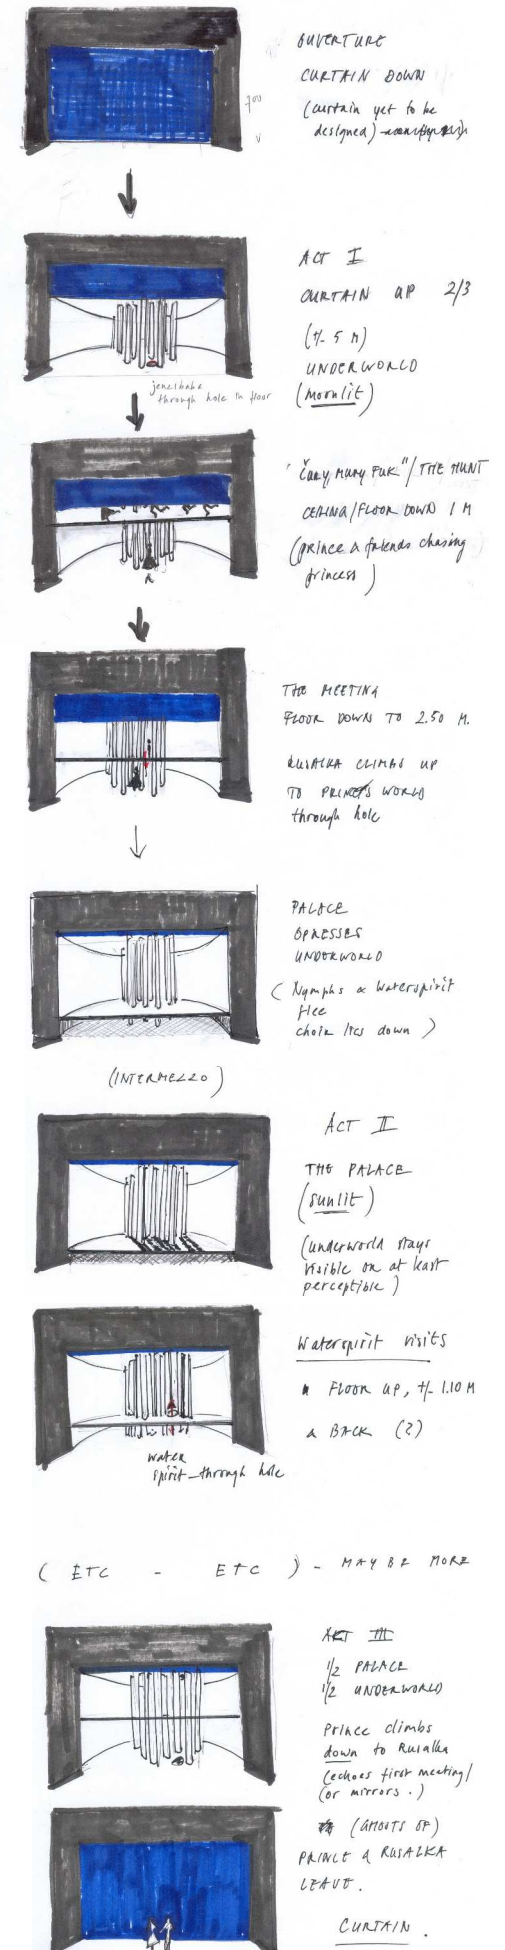 OUVERTURE
CURTAIN DOWN
(curtain yet to be
designed)
700
V
ACT I
CURTAIN UP 2/3
(+/- 5 M)
UNDERWORLD
(moonlit)
jezibaba
through hole in floor
"Čury mury FUK"/THE HUNT
CEILING/FLOOR DOWN 1 M
(prince & friends chasing
princess)
R
THE MEETING
FLOOR DOWN TO 2.50 M.
RUSALKA CLIMBS UP
TO PRINCE'S WORLD
through hole
PALACE
OPRESSES
UNDERWORLD
(Nymphs & Waterspirit
flee
choir lies down)
(INTERMEZZO)
ACT II
THE PALACE
(sunlit)
(underworld stays
visible or at least
perceptible)
Waterspirit visits
FLOOR UP, +/- 1.10 M
& BACK (?)
water
spirit - through hole
(ETC - ETC) - MAYBE MORE
ACT III
1/2 PALACE
1/2 UNDERWORLD
Prince climbs
down to Rusalka
(echoes first meeting/
(or mirrors.)
(GHOSTS OF)
PRINCE & RUSALKA
LEAVE.
CURTAIN.